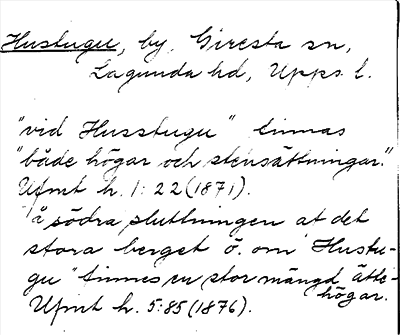 Hustugu, by, Giresta sn,
Lagunda hd, Upps. l.
"vid Husstugu" finnas
"både högar och stensättningar."
Ufmt h. 1: 22 (1871).
"å södra sluttningen at det
stora berget ö. om Hustu-
gu" finnes en stor mängd ätte-
högar.
Ufmt h. 5:85 (1876).